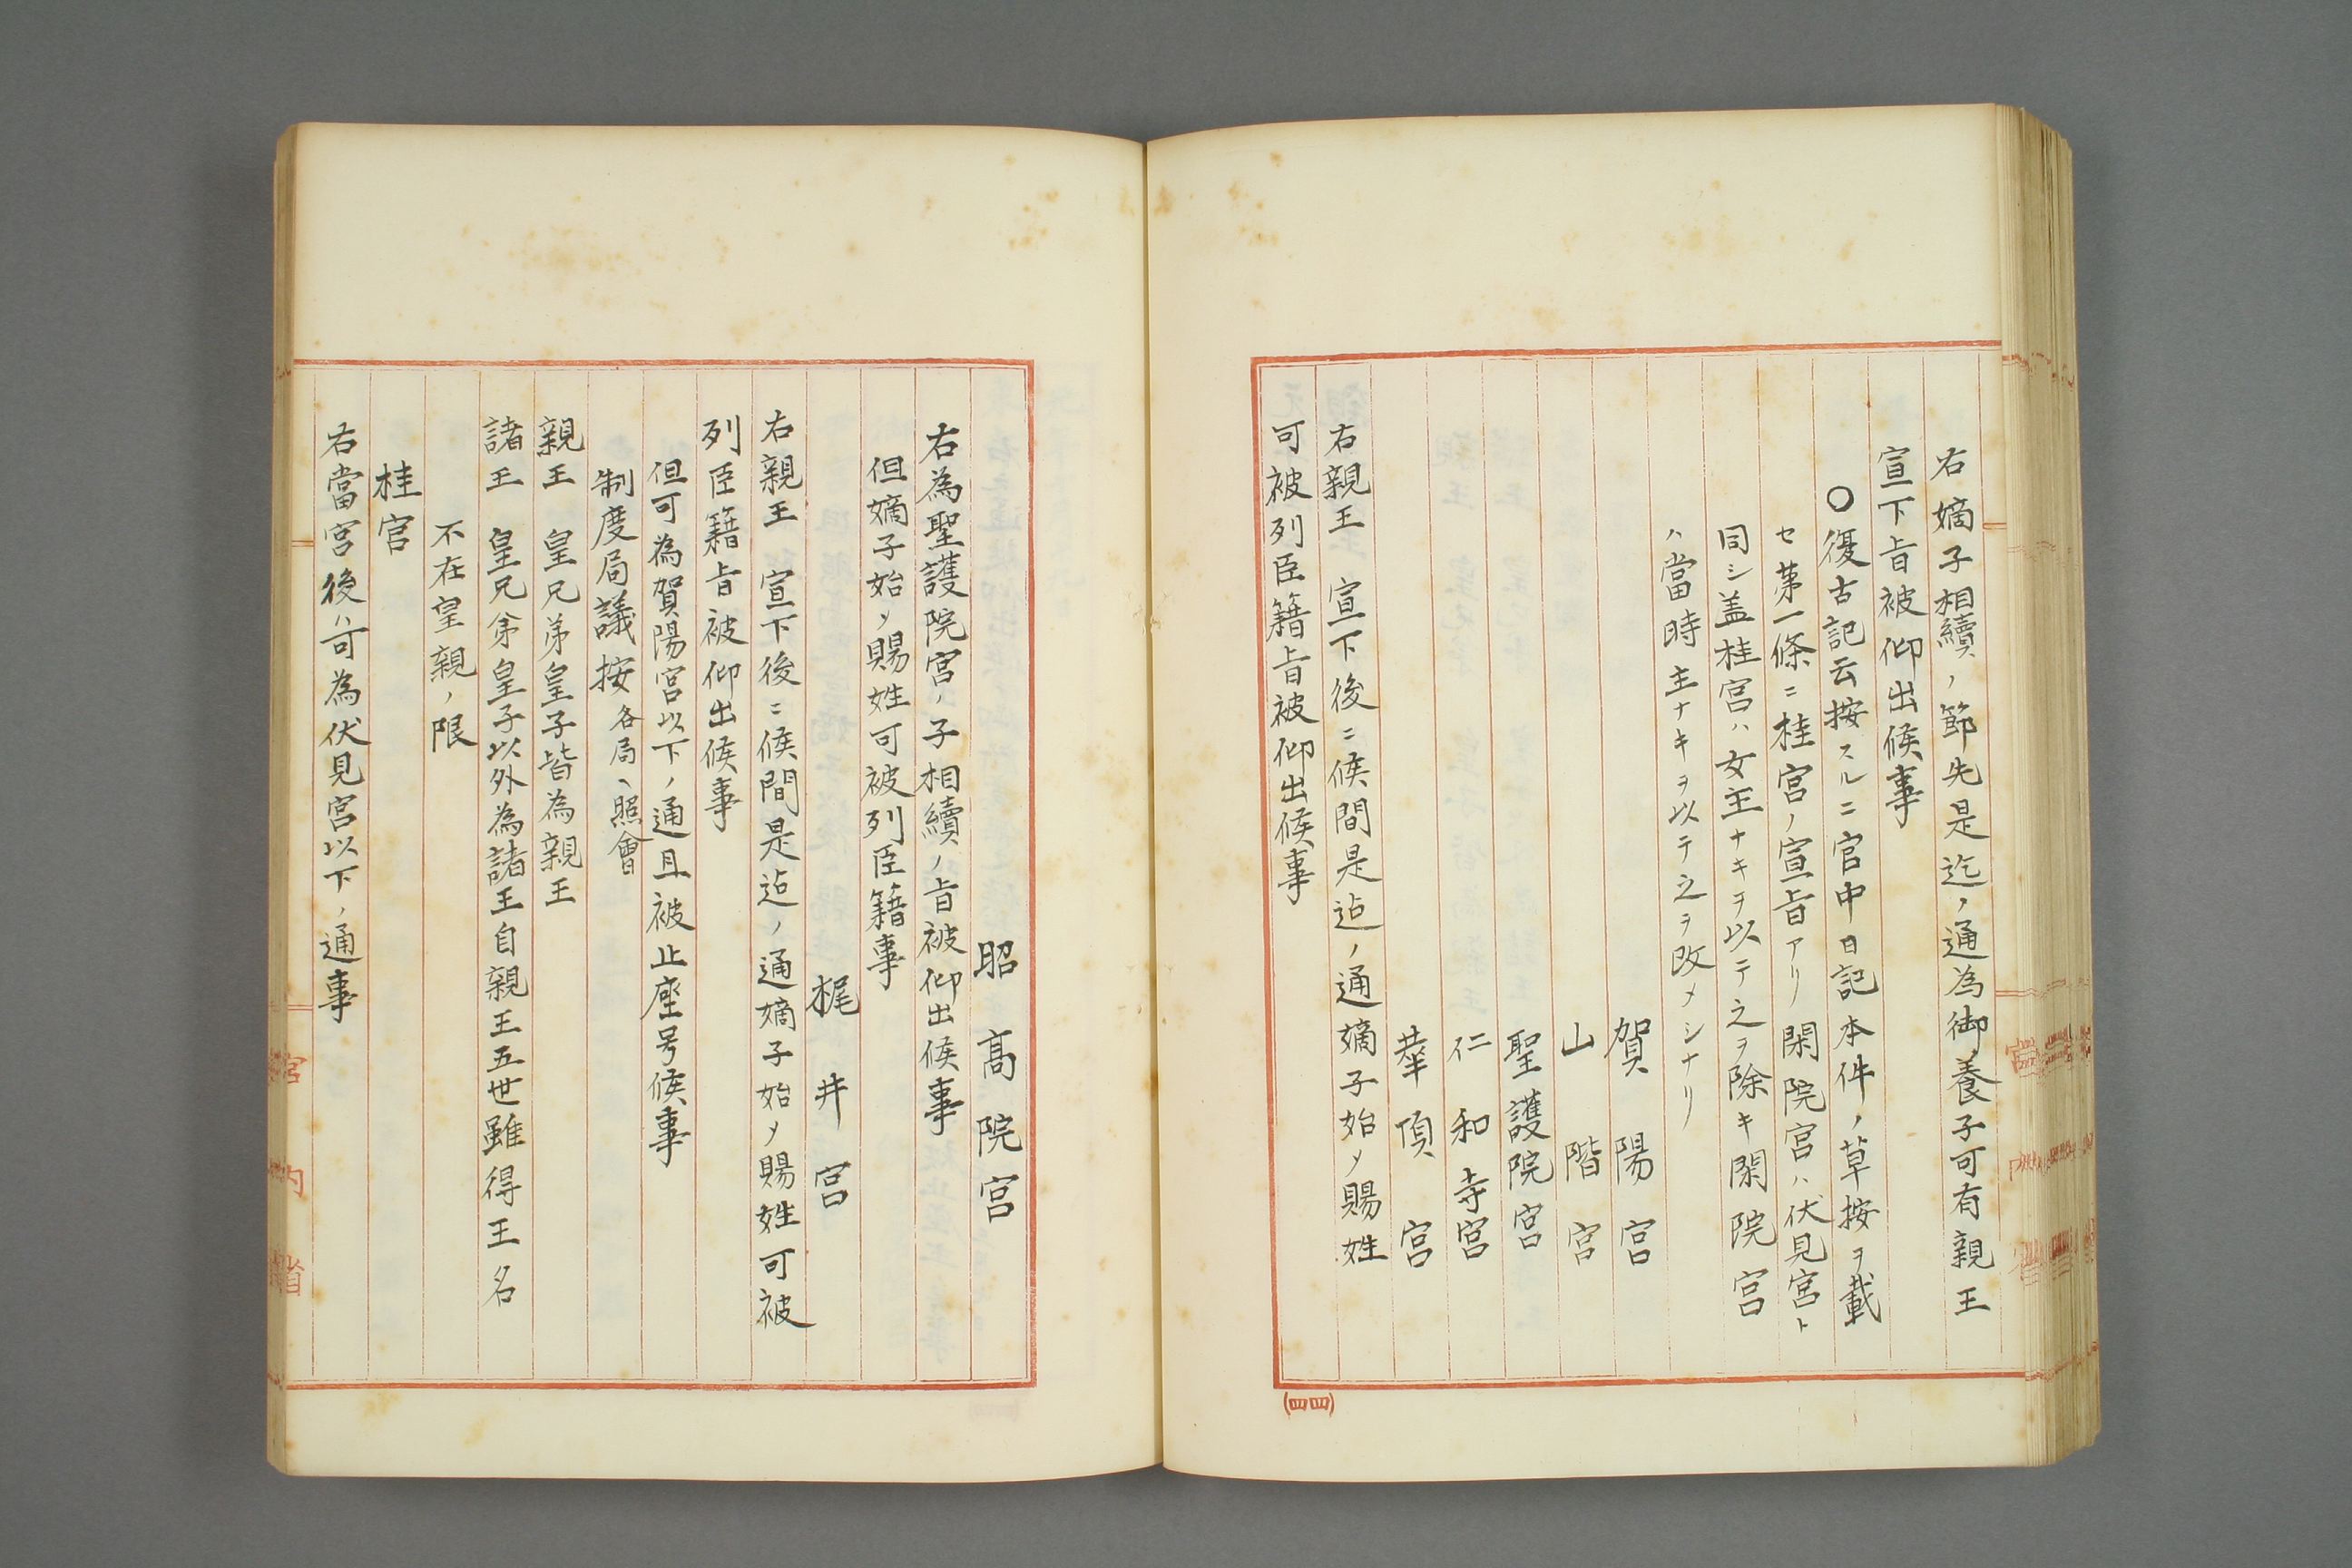 右嫡子相續ノ節先是迄ノ通為御養子可有親王
宣下旨被仰出候事
○復古記云按スルニ官中日記本件ノ草按ヲ載
セ第一條ニ桂宮ノ宣旨アリ閑院宮ハ伏見宮ト
同シ盖桂宮ハ女主ナキヲ以テ之ヲ除キ閑院宮
ハ當時主ナキヲ以テ之ヲ改メシナリ
賀陽宮
山階宮
聖護院宮
仁和寺宮
華頂宮
右親王　宣下後ニ候間是迠ノ通嫡子始メ賜姓
可被列臣籍旨被仰出候事
(四四)
昭高院宮
右為聖護院宮ノ子相續ノ旨被仰出候事
但嫡子始メ賜姓可被列臣籍事
梶井宮
右親王　宣下後ニ候間是迠ノ通嫡子始メ賜姓可被
列臣籍旨被仰出候事
但可為賀陽宮以下ノ通且被止座号候事
制度局議按各局ヘ照會
親王　皇兄弟皇子皆為親王
諸王　皇兄弟皇子以外為諸王自親王五世雖得王名
不在皇親ノ限
桂宮
右當宮後ハ可為伏見宮以下ノ通事
宮内省